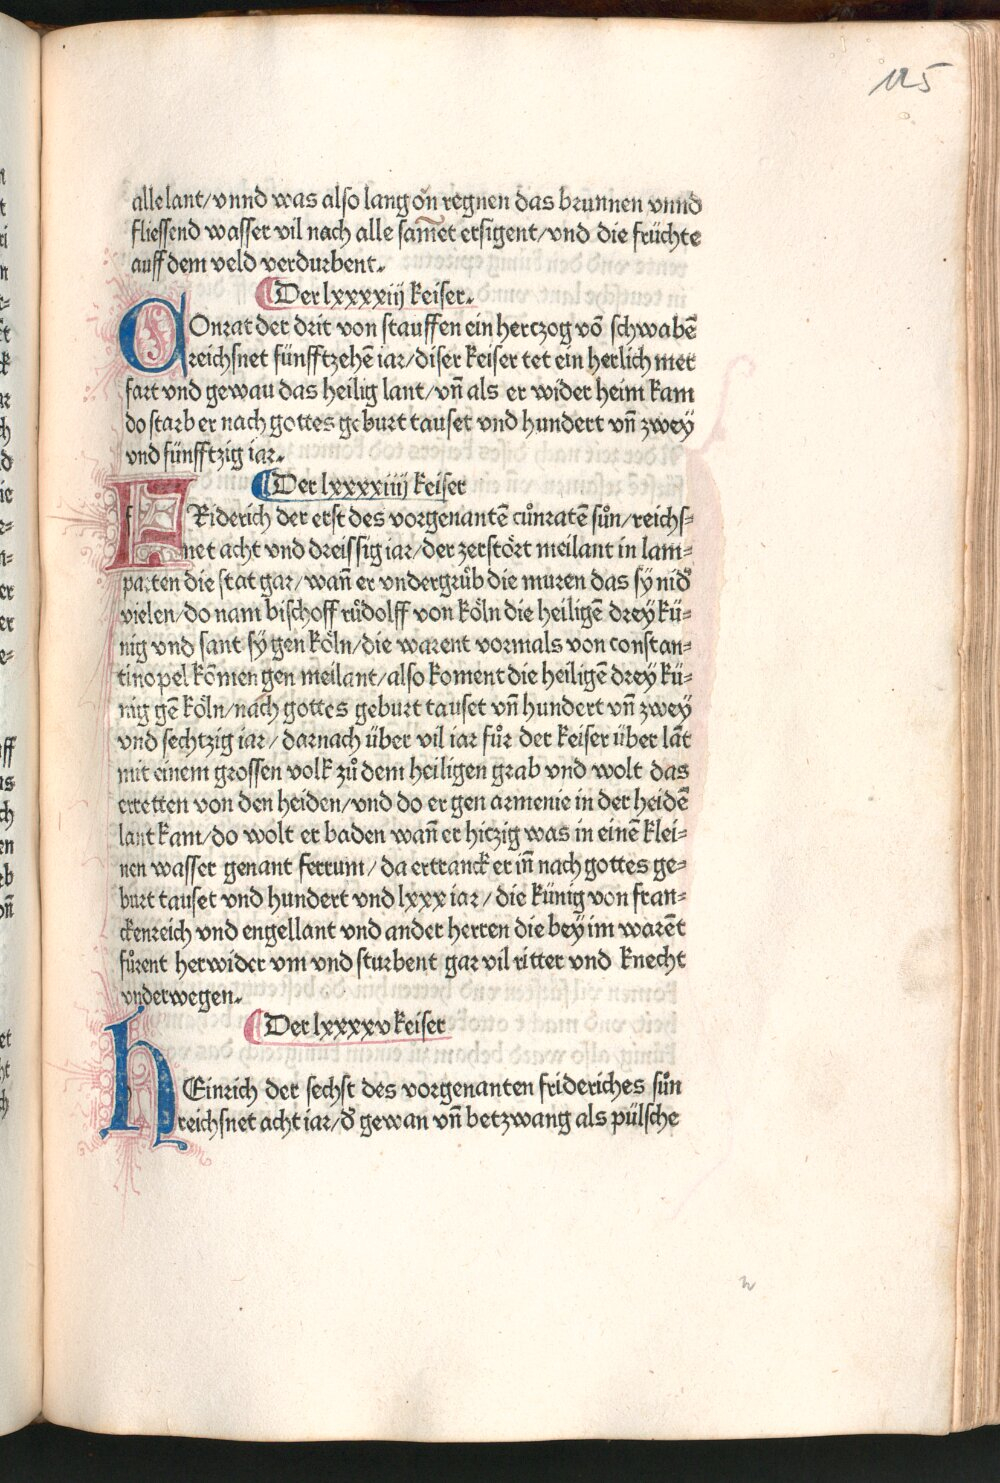 125
alle lant/vnnd was also lang on regnen das brunnen vnnd
fliessend wasser vil nach alle samet ersigent/vnd die früchte
auff dem veld verdurbent.
Der lxxxxiij keiser.
COnrat der drit von stauffen ein hertzog vō schwabē
reichsnet fünfftzehē iar/diser keiser tet ein herlich mer
fart vnd gewau das heilig lant/vñ als er wider heim kam
do starb er nach gottes geburt tauset vnd hundert vñ zwey
vnd fünfftzig iar.
Der lxxxxiiij keiser
FRiderich der erst des vorgenantē cůnratē sůn/reichs=
net acht vnd dreissig iar/der zerstört meilant in lam=
parten die stat gar/wañ er vndergrůb die muren das sy nid᷑
vielen/do nam bischoff růdolff von köln die heiligē drey kü=
nig vnd sant sy gen köln/die warent vormals von constan=
tinopel kōmen gen meilant/also koment die heiligē drey kü=
nig gē köln/nach gottes geburt tauset vñ hundert vñ zwey
vnd sechtzig iar/darnach über vil iar fůr der keiser über lāt
mit einem grossen volk zů dem heiligen grab vnd wolt das
erretten von den heiden/vnd do er gen armenie in der heidē
lant kam/do wolt er baden wañ er hitzig was in einē klei=
nen wasser genant ferrum/da ertranck er iñ nach gottes ge=
burt tauset vnd hundert vnd lxxx iar/die künig von fran=
ckenreich vnd engellant vnd ander herren die bey im warēt
fůrent herwider vm vnd sturbent gar vil ritter vnd knecht
vnderwegen.
Der lxxxxv keiser
hEinrich der sechst des vorgenanten frideriches sůn
reichsnet acht iar/d᷑ gewan vñ betzwang als pülsche